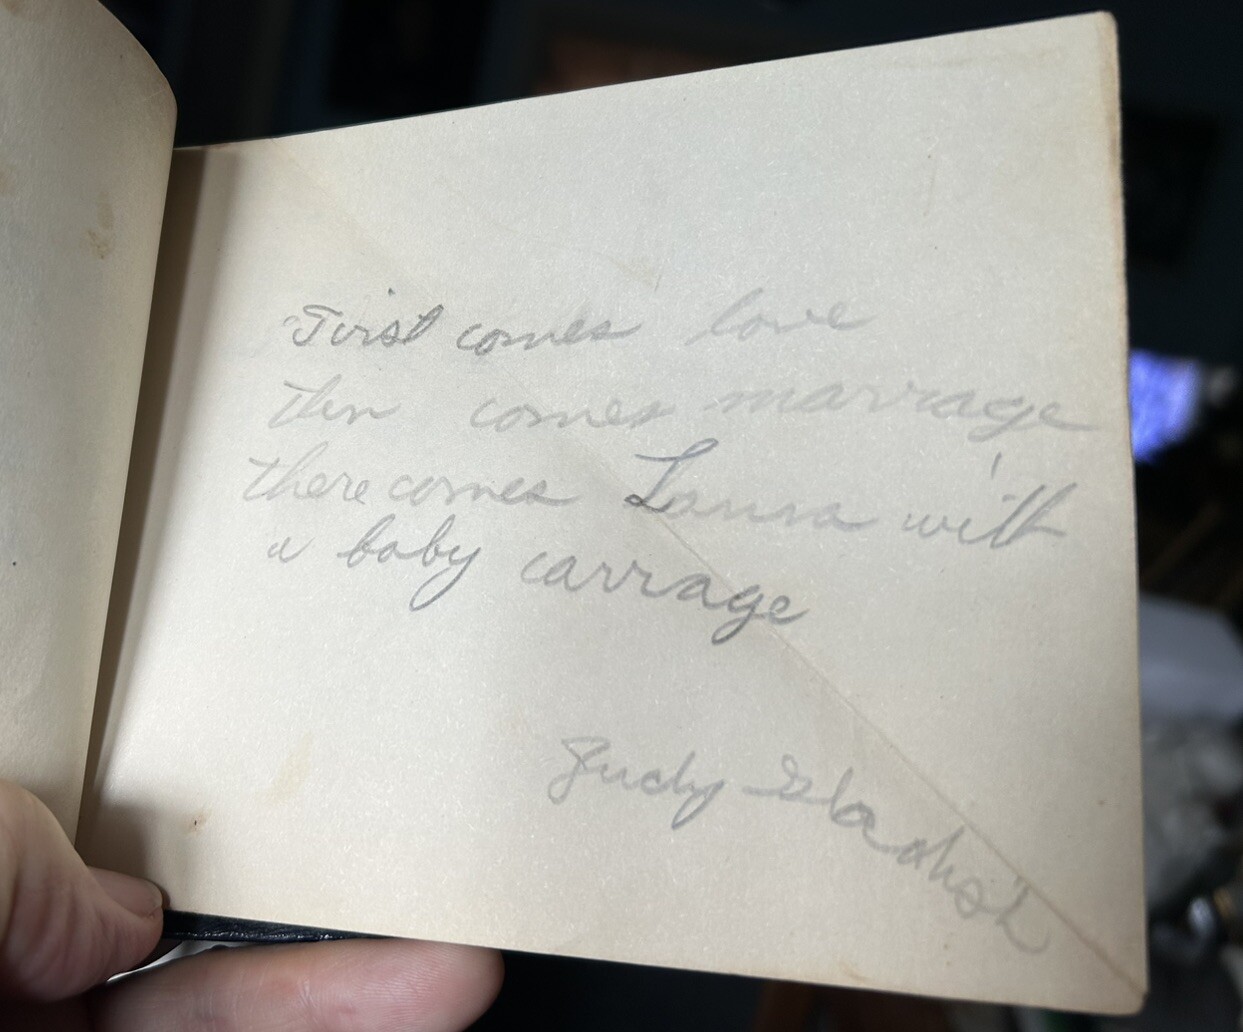 First comes love
then comes marrage
there comes Laura with
a baby carrage
Judy Gladish